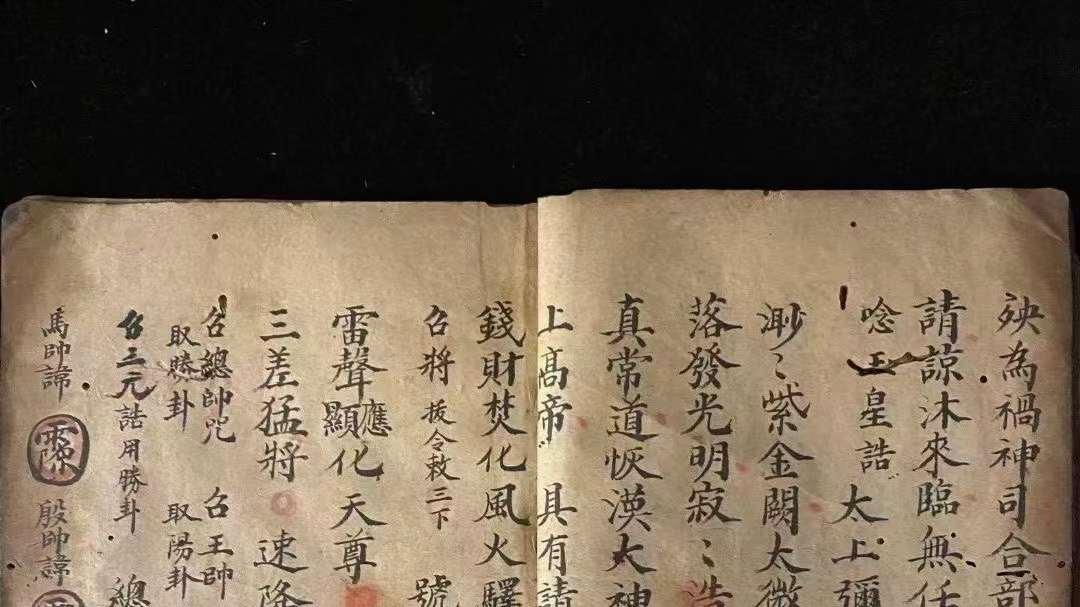 殃為禍神司合部
請諒沐來臨無任
唸玉皇誥 太上彌
渺〻紫金闕太微
落發光明寂〻浩
真常道恢漠大神
上高帝 具有請
錢財焚化風火驛
召將 拔令敕三下 號
雷聲應顯化天尊
三差猛將 速降
召總帥咒 召王帥
取勝卦 取陽卦
召三元誥用勝卦 總
馬帥諱 殷帥諱